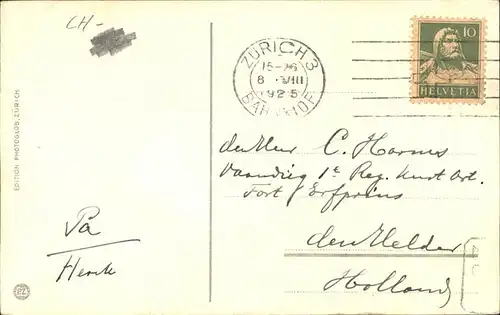 CH-
ZÜRICH 3
15-16
8 VIII
1925
BAHNHOF
10
HELVETIA
EDITION PHOTOGLOB, ZÜRICH
den Heer C. Harms
Vaandrig 1e Reg. Kust Art.
Fort Erfprins
den Helder
Holland
Pa
Henk
PZ